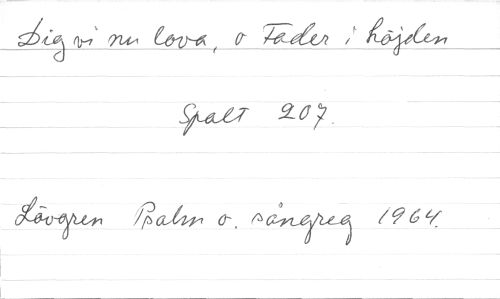 Dig vi nu lova, o Fader i höjden
Spalt 207.
Lövgren Psalm o. sångreg 1964.